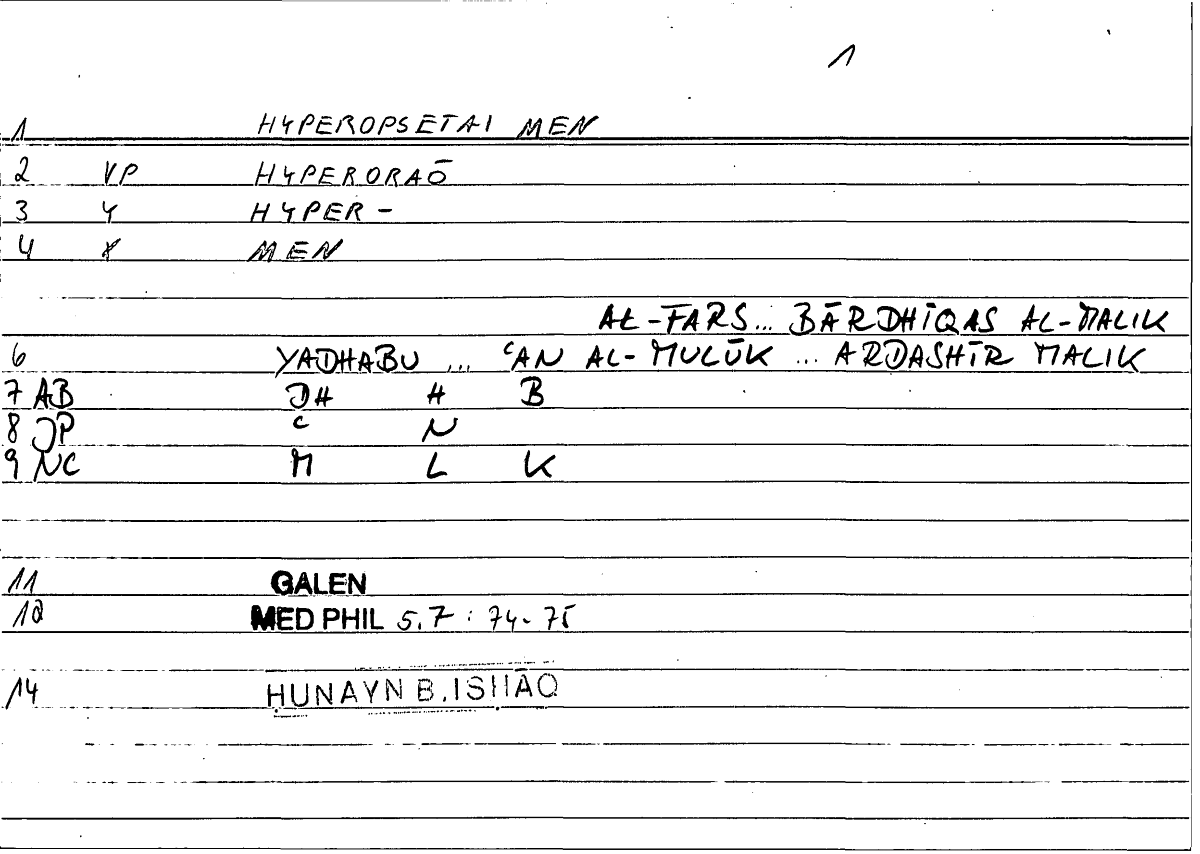 1
1 HYPEROPSETAI MEN
2 VP HYPERORAŌ
3 Y HYPER-
4 X MEN
AL-FARS... BĀRDHĪQAS AL-MALIK
6 YADHABU ... ʿAN AL-MULŪK ... ARDASHĪR MALIK
7 AB DH H B
8 JP ʿ N
9 NC M L K
11 GALEN
12 MED PHIL 5.7 : 74-75
14 ḤUNAYN B. ISḤĀQ